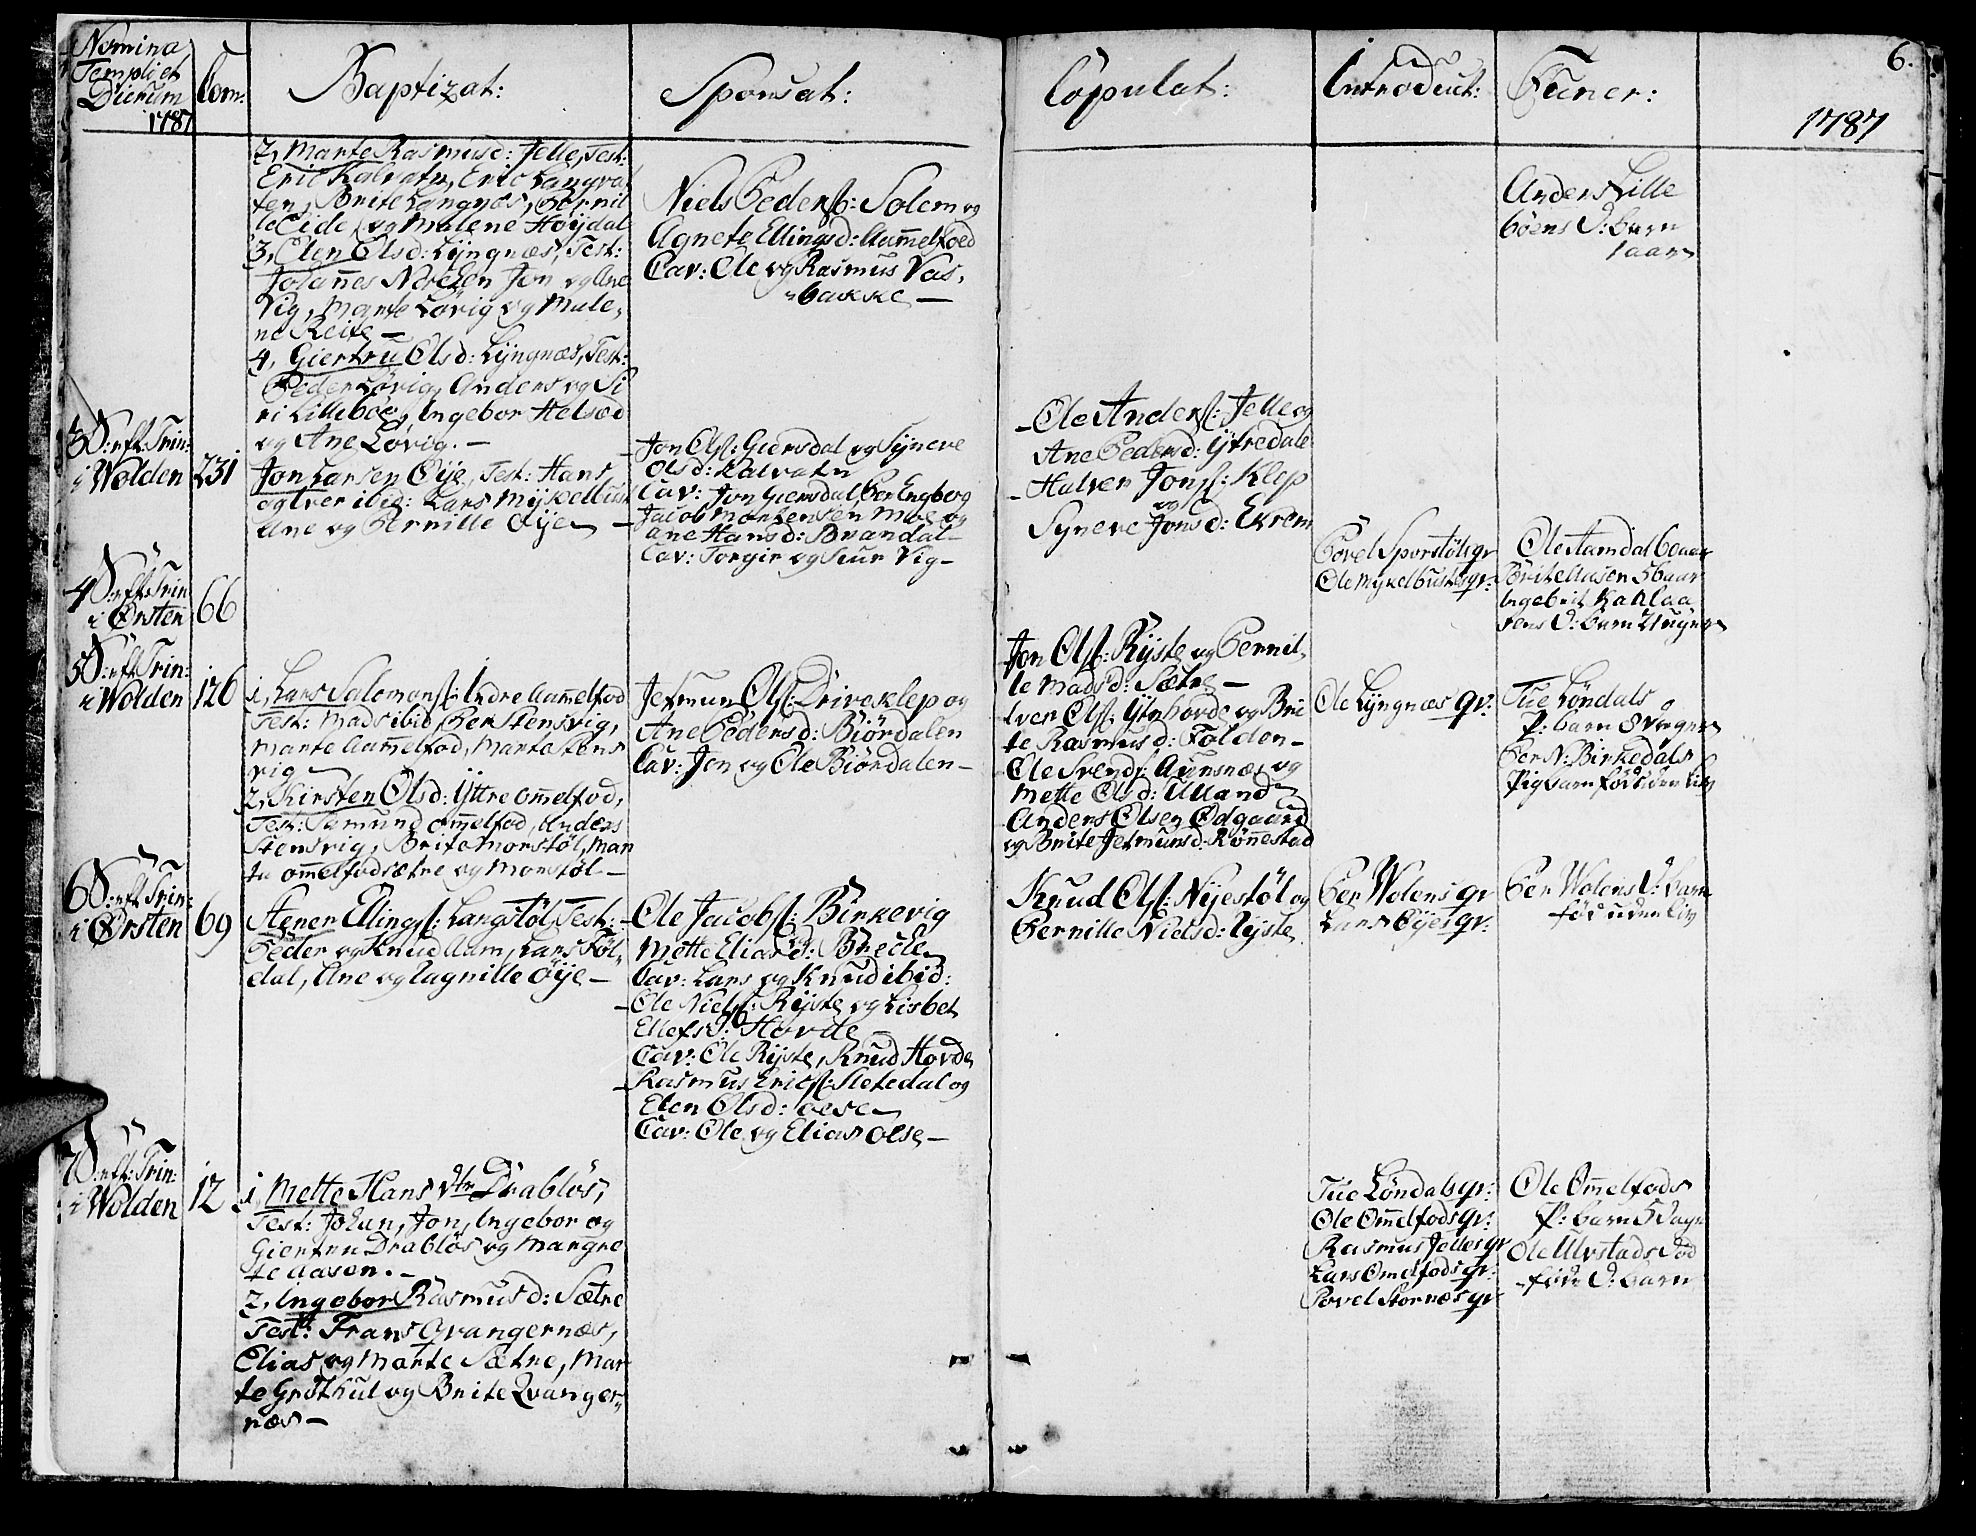 Nomina
Templi et
Dierum
1787
Com:
Baptizat:
Sponsat:
Copulat:
Introduct:
Funer:
6.
1787
2, Marte Rasmusd: Jelle, Test:
Eric Kalvatn, Eric Langvat
ten, Brite Langnæs, Pernil
le Eide og Malene Høydal
3, Elen Olsd: Lyngnæs, Test:
Johannes Jon og Ane
Vig, Marte Løvig og Male,
ne Reite –
4, Giertru Olsd: Lyngnæs, Test:
Peder Løvig, Anders og Si
ri Lillebøe, Ingebor Helsed
og Ane Løvig. –
Niels Peders: Solem og
Agnete Ellingsd: Aamelfoed
Cav: Ole og Rasmus Vas,
bakke –
Anders Lille
bøens D: barn
1 aar
3 D: eft: Trin:
i Wolden
231
Jon Larsen Øye, Test: Hans
og Iver ibid: Lars Mykelbust
Ane og Pernille Øye –
– Jon Ols: Giersdal og Syneve
Olsd: Kalvatn
Cav: Jon Giersdal, Per Engberg
– Jacob Mortensen Moe og
Ane Hansd: Brandal
Cav: Torgir og Siur Vig –
– Ole Anders: Jelle og
Ane Pedersd: Ytredale
– Halvor Jons: Klep
og
Syneve Jonsd: Ekrem
4 D: eft: Trin
i Ørsten
66
Povel Sporstøls qv
Ole Mykelbusts qv:
Ole Aamdal 60 aar
Brite Aasen 56 aar
Ingebrit Kahlaa
sens D: barn 2 uger
5 D: eft: Trin:
i Wolden
126
1, Lars Salomons: Indre Aamelfod
Test: Mads ibid, Per Stensvig,
Marte Aamelfod, Marte Stens
vig –
2, Kirsten Olsd: Yttre Omelfod,
Test: Samund Omelfod, Anders
Stensvig, Brite Morstøl, Mar
te Omelfodsætre og Morstøl –
Jetmun Ols: Driveklep og
Ane Pedersd: Biørdalen
Cav: Jon og Ole Biørdalen –
Jon Ols: Ryste og Pernil,
le Madsd: Sætre –
Iver Ols: Ytrehovde og Bri
te Rasmusd: Folden –
Ole Svends: Aursnæs og
Mette Olsd: Ulland
Anders Olsen Ødgaard
og Brite Jetmunsd: Rønnestad
Ole Lyngnæs qv:
Tue Løndals
P: barn 8 Dager
Per N: Birkedals
Pigbarn fød uden liv
6 D: eft: Trin:
i Ørsten
69
Stener Ellings: Langstøl, Test:
Peder og Knud Aam, Lars Føl,
dal, Ane og Lagnille Øye –
– Ole Jacobs: Birkevig
og
Mette Eliasd: Brecke
Cav: Lars og Knud ibid:
– Ole Niels: Ryste og Lisbet
Ellefsd: Hovde
Cav: Ole Ryste, Knud Hovde
– Rasmus Erics: Sletedal og
Elen Olsd: Oese
Cav: Ole og Elias Olse –
Knud Ols: Nyestøl og
Pernille Nielsd: Ryste
Per Wolens qv
Lars Øyes qv:
Per Wolens D: barn
fød uden liv
7 D: eft: Trin:
i Wolden
12
1, Mette Hans Dtr Drabløs,
Test: Johan, Jon, Ingebor og
Giertru Drabløs og Margre
te Aasen. –
2, Ingebor Rasmusd: Sætre
Test: Frans Qvangernæs,
Elias og Marte Sætre, Mar
te Grøthul og Brite Qvanger,
næs –
Tue Løndals qv:
Ole Omelfods qv:
Rasmus Jelles qv
Lars Omelfods qv:
Povel Stornæs qv
Ole Omelfods
P: barn 5 Dage
Ole Ulvstads Død
føde D: barn